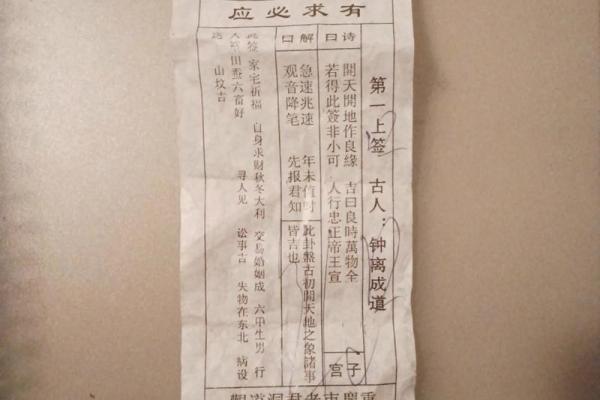 有求必应
第一上签 古人：钟离成道
子宫
诗曰
開天開地作良緣 吉曰良時萬物全
若得此簽非小可 人行忠正帝王宣
解曰
急速兆速 年未值时
观音降笔 先报君知
此卦盤古初開天地之象諸事
皆吉也
签 家宅祈福 自身求财秋冬大利 交易婚姻成 六甲生男 行
人 田蚕六畜好 寻人见 讼事吉 失物在东北 病设
送 山坟吉